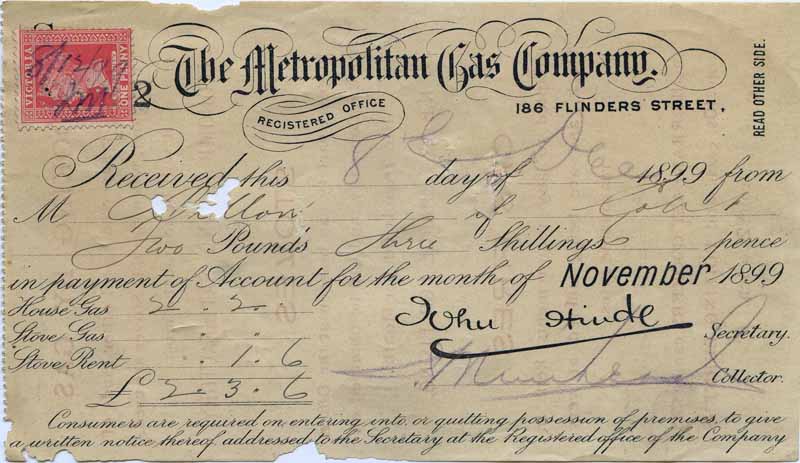 VICTORIA
ONE PENNY
2
The Metropolitan Gas Company.
REGISTERED OFFICE
186 FLINDERS STREET,
READ OTHER SIDE.
Received this 8 day of Dec 1899 from
M of
Two Pounds Three Shillings 6 pence
in payment of Account for the month of November 1899
House Gas 2 . 2 .
Stove Gas . .
Stove Rent . 1 . 6
£ 2 . 3 . 6
John Hinde Secretary.
Collector.
Consumers are required on entering into, or quitting possession of premises, to give
a written notice thereof, addressed to the Secretary at the Registered office of the Company